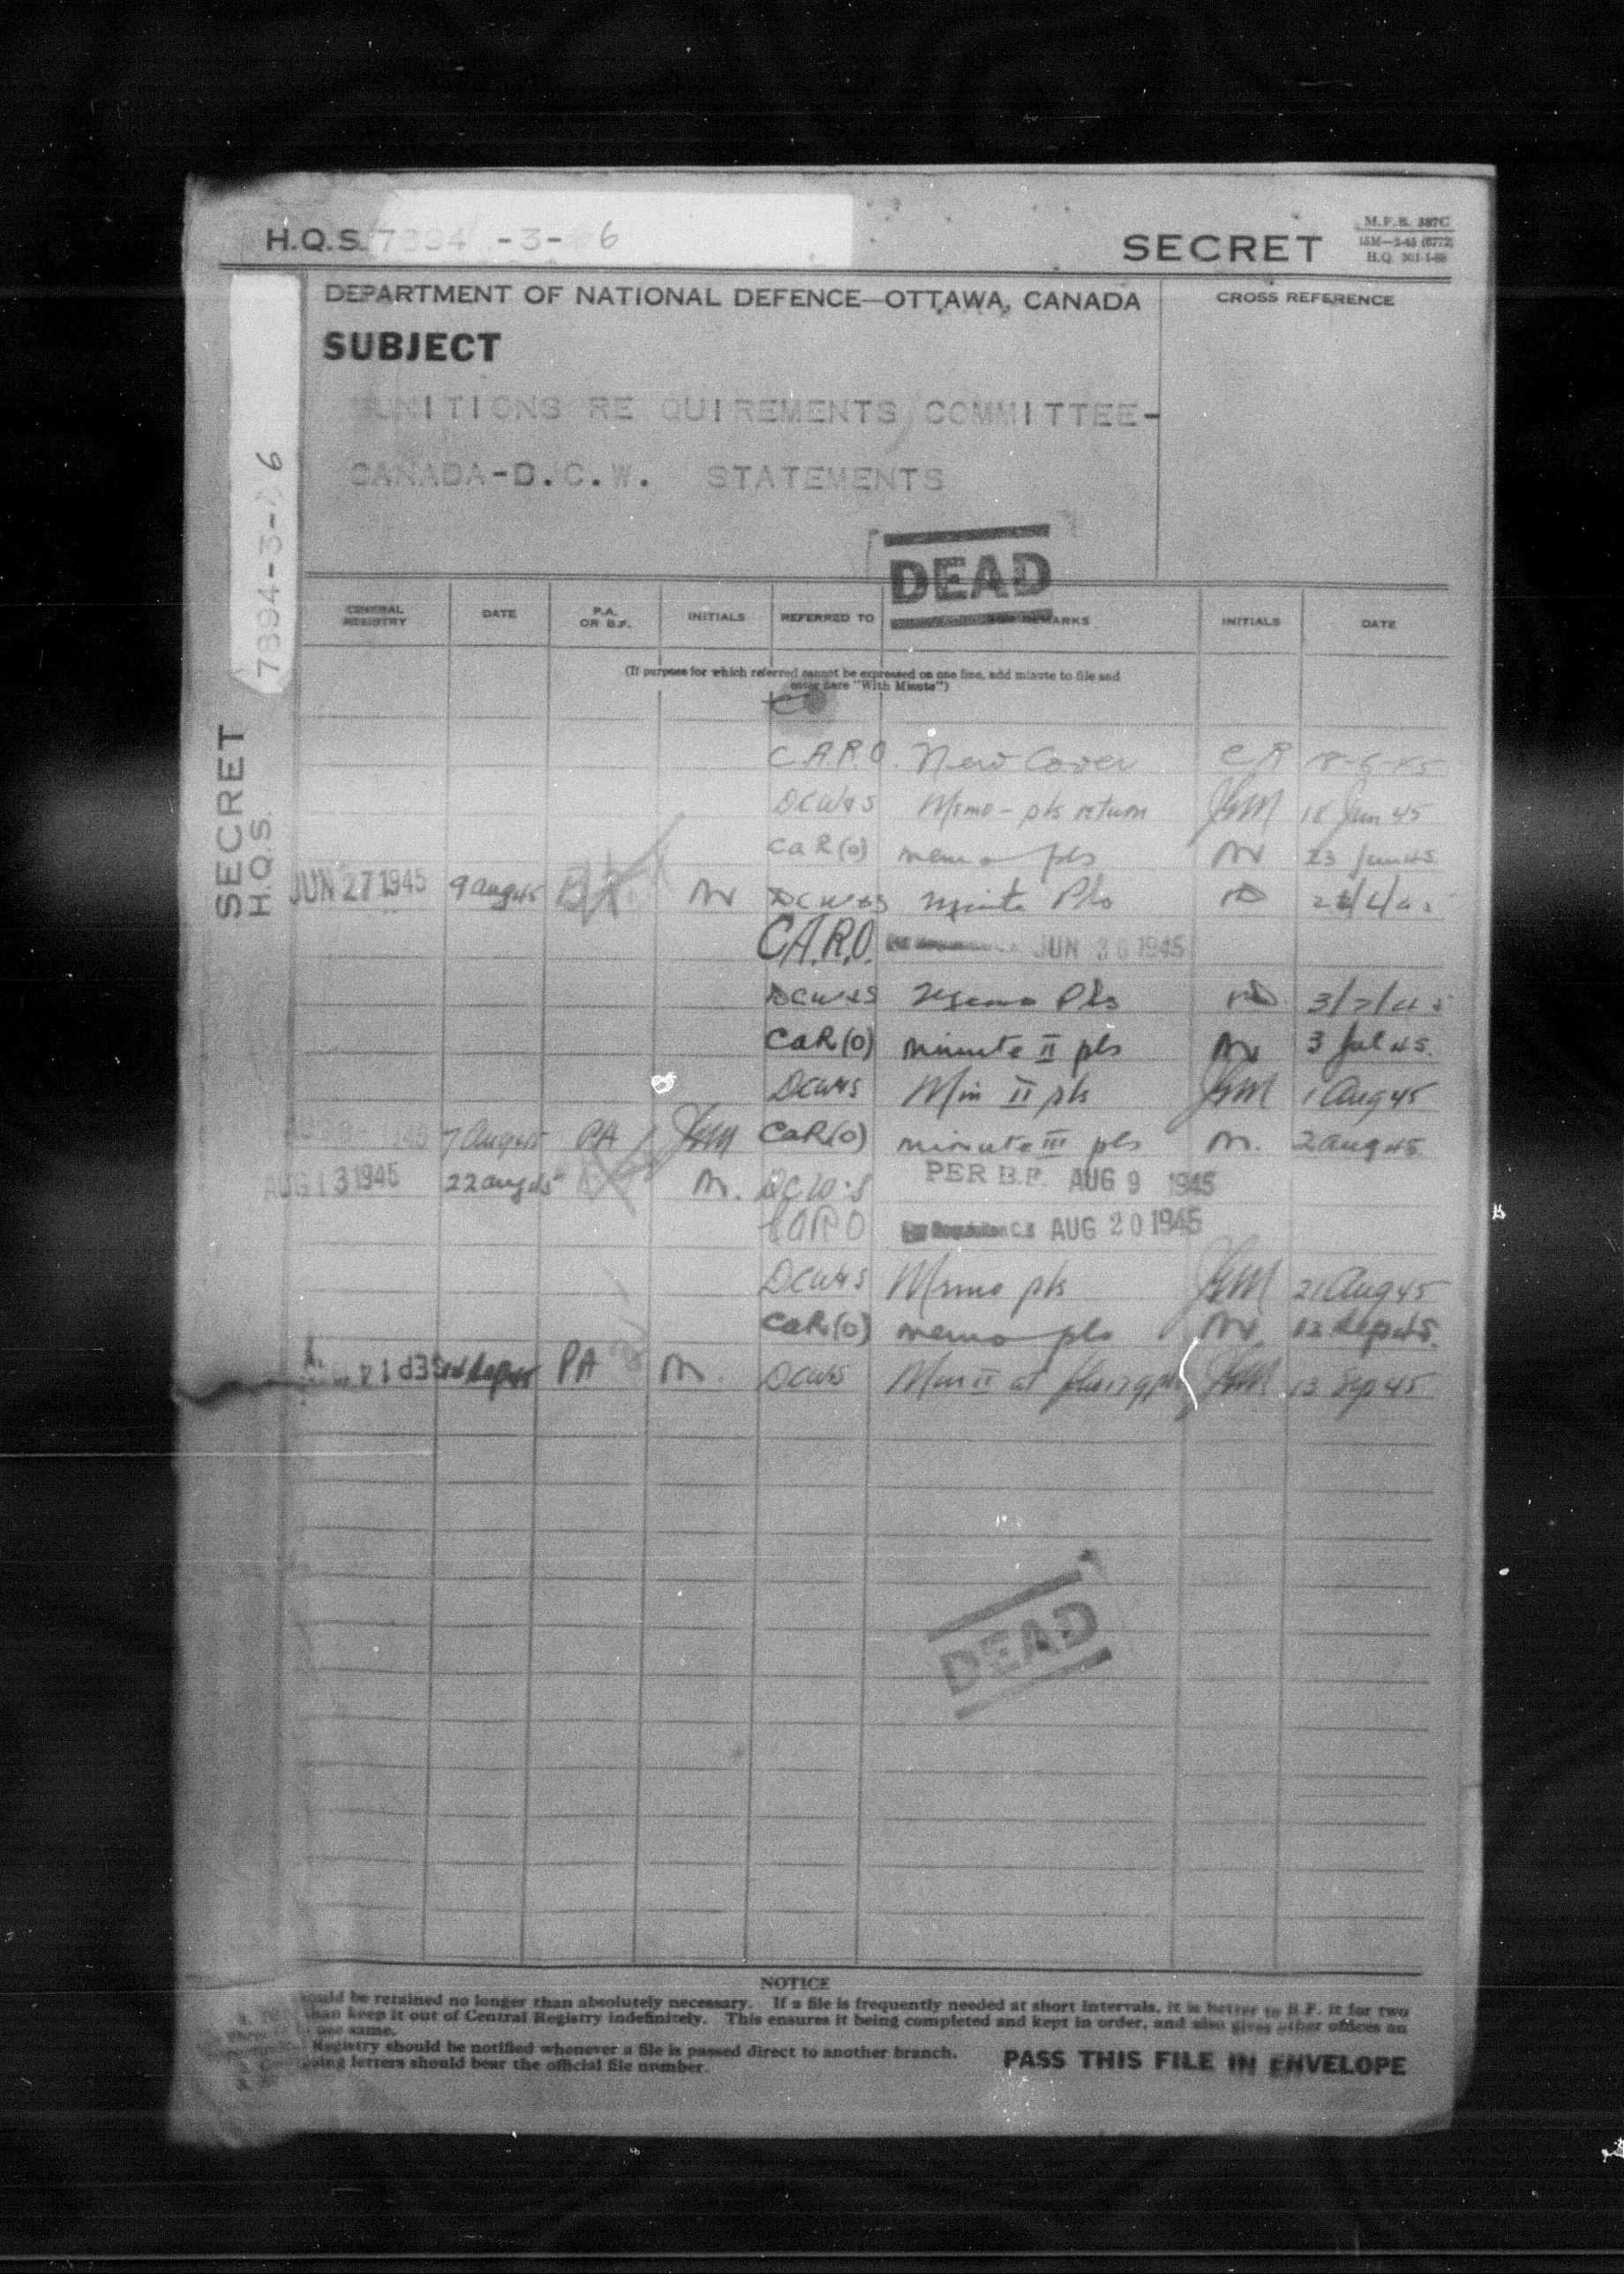 H.Q.S. 7894-3-6
SECRET
M.F.B. 387C
15M—2-45 (6772)
H.Q. 301-1-88
DEPARTMENT OF NATIONAL DEFENCE—OTTAWA, CANADA
CROSS REFERENCE
SUBJECT
MUNITIONS RE QUIREMENTS COMMITTEE-
CANADA-D.C.W. STATEMENTS
DEAD
SECRET
H.Q.S.
7894-3-6
CENTRAL REGISTRY DATE P.A. OR B.F. INITIALS REFERRED TO REMARKS INITIALS DATE
(If purpose for which referred cannot be expressed on one line, add minute to file and
enter here "With Minute")
C.A.R.O. New Cover CR 18-6-45
DCW&S Memo - pls return JGM 18 Jun 45
CaR(O) memo pls 23 Jun 45
JUN 27 1945 9 Aug 45 BF DCW&S Minute Pls
C.A.R.O. JUN 30 1945
DCW&S Memo Pls 3/7/45
CaR(O) minute II pls 3 Jul 45.
DCW&S Min II pls JGM 1 Aug 45
7 Aug 45 PA JGM CaR(O) minute III pls M. 2 Aug 45
AUG 13 1945 22 Aug 45 M. DCW&S PER B.F. AUG 9 1945
CARO AUG 20 1945
DCW&S Memo pls JGM 21 Aug 45
CaR(O) memo pls 12 Sep 45.
SEP 14 14 Sep 45 PA M. DCW&S Min II at JGM 13 Sep 45
DEAD
NOTICE
be retained no longer than absolutely necessary. If a file is frequently needed at short intervals, it is better to B.F. it for two
than keep it out of Central Registry indefinitely. This ensures it being completed and kept in order, and also gives other offices an
same.
Registry should be notified whenever a file is passed direct to another branch.
letters should bear the official file number.
PASS THIS FILE IN ENVELOPE